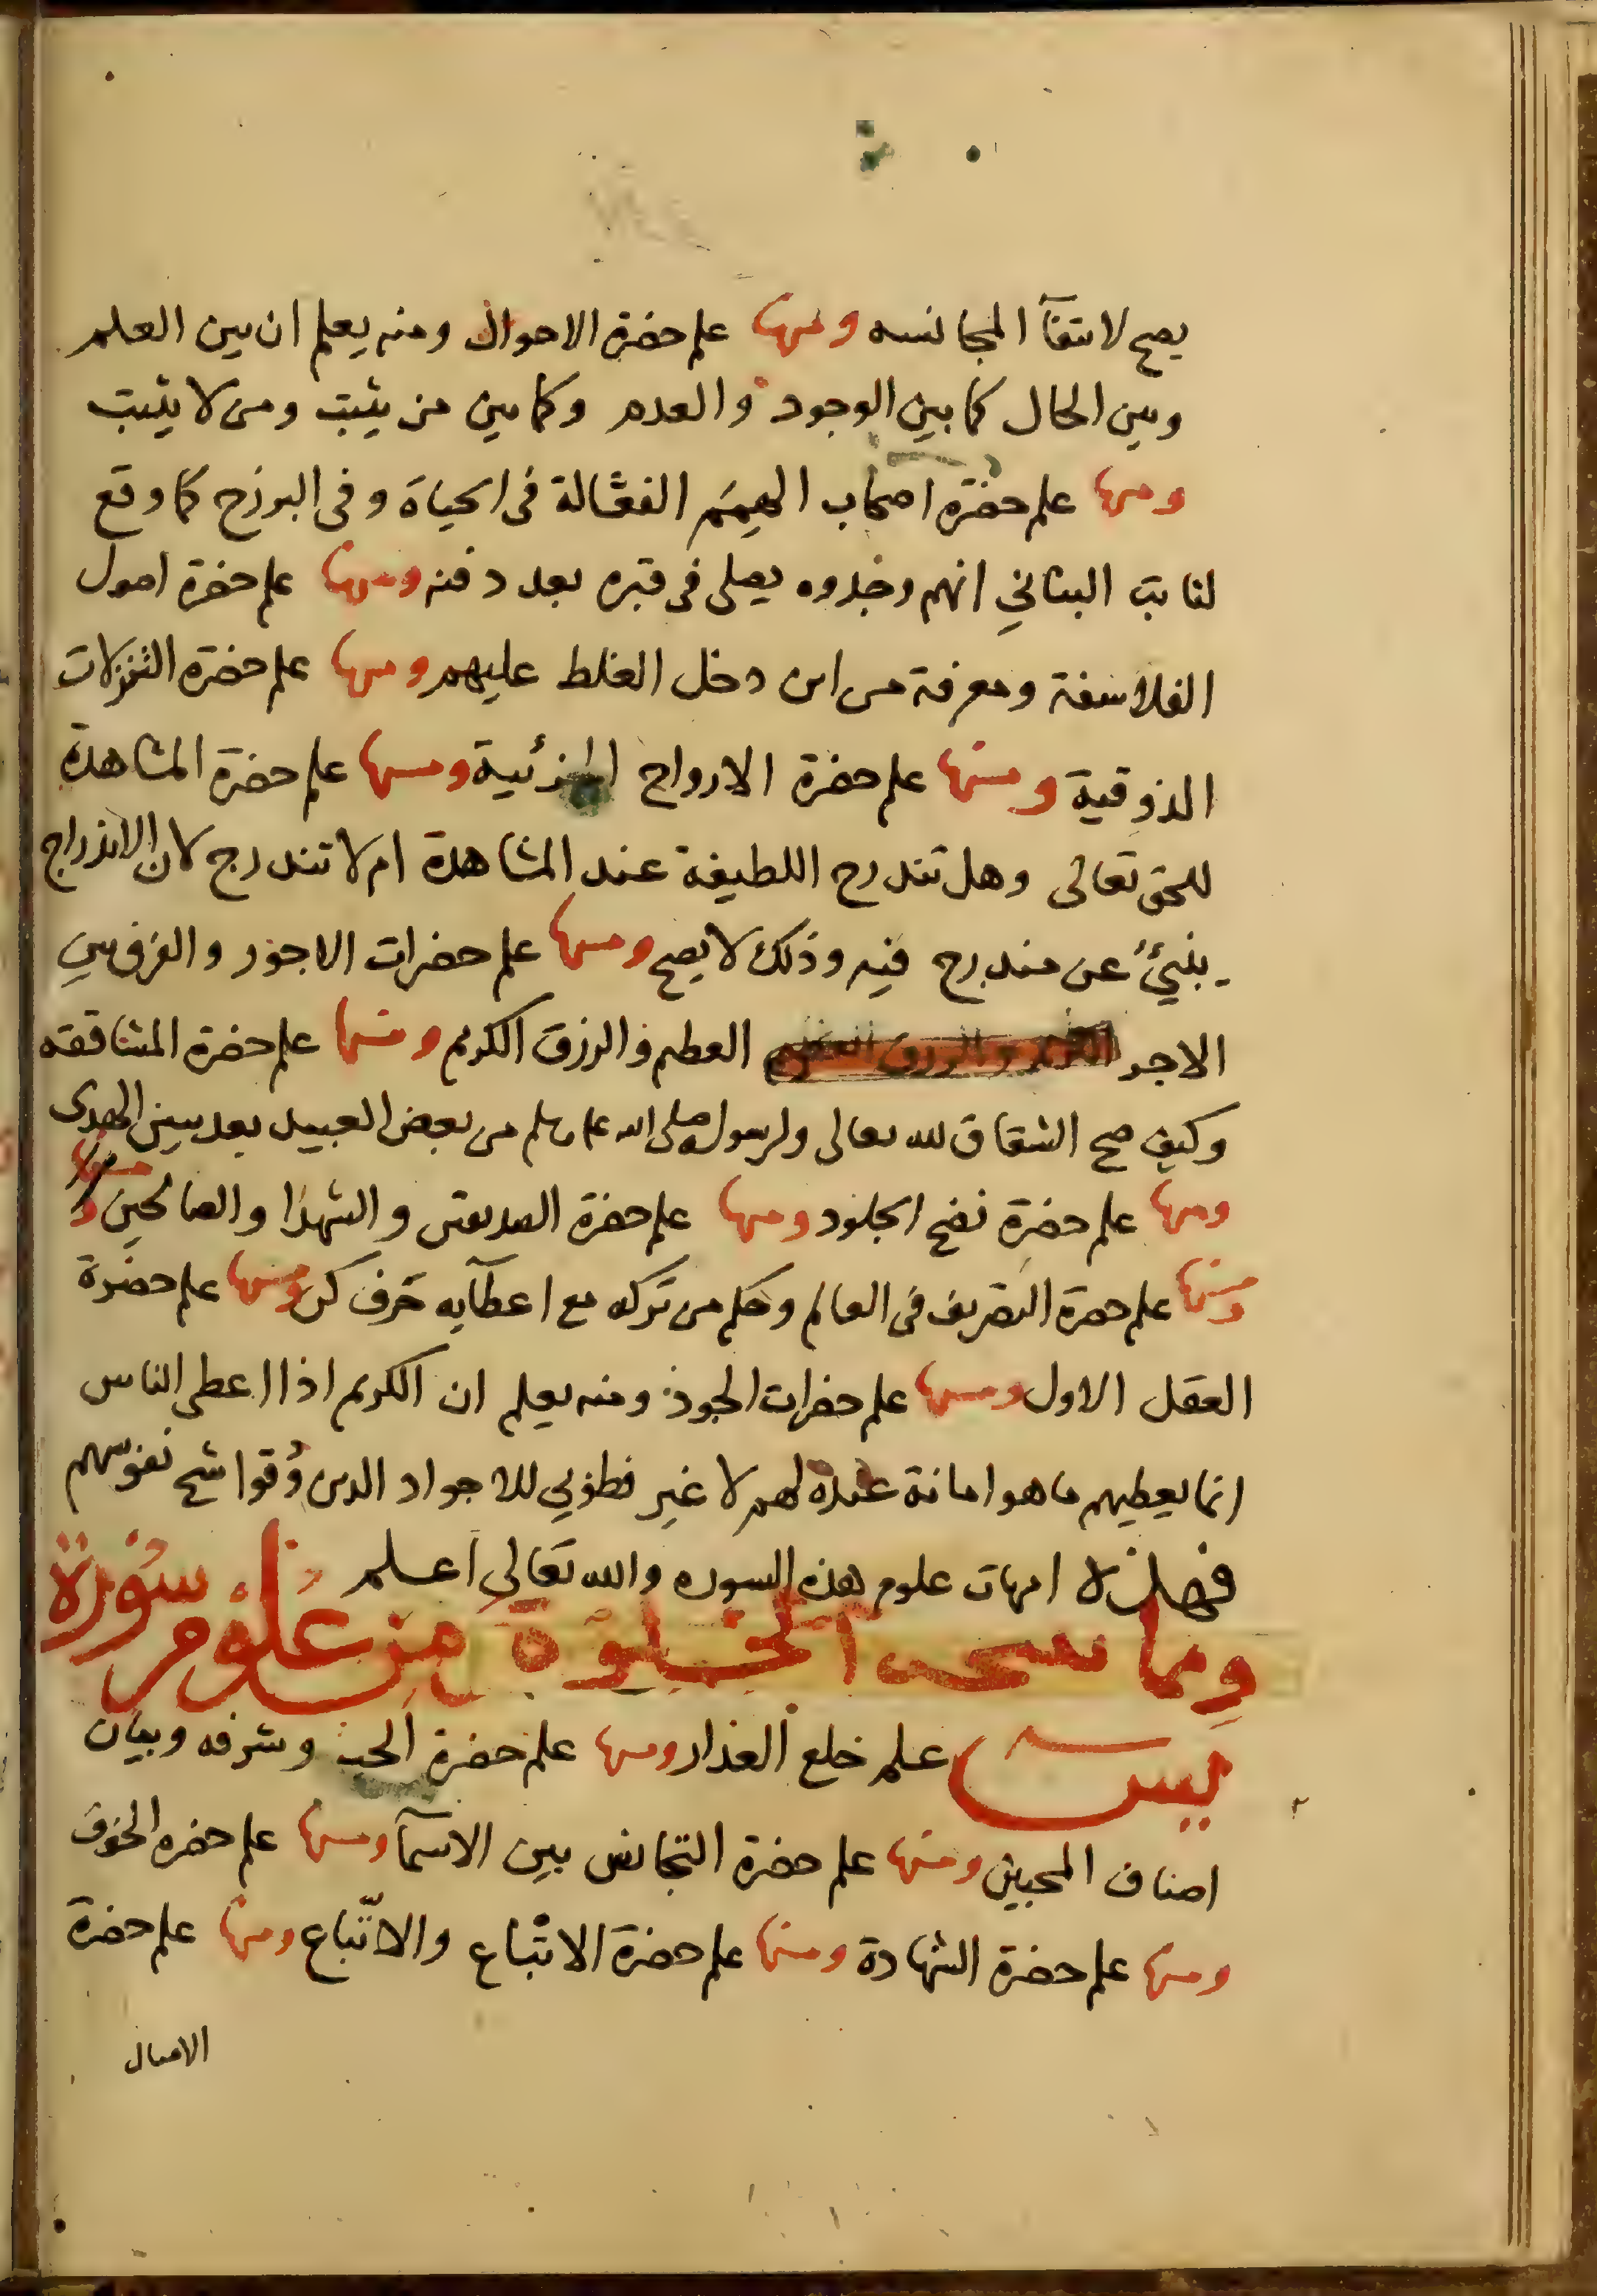 يصح لانتفآ المجانسه ومنها علم حضرة الاحوال ومنه يعلم ان بين العلم
وبين الحال كما بين الوجود والعدم وكما بين من يثبت ومن لا يثبت
ومنها علم حضرة اصحاب الهمم الفعّالة فى الحياة وفى البرزخ كما وقع
لثابت البنانى انهم وجدوه يصلى فى قبره بعد دفنه ومنها علم حضرة اصول
الفلاسفة ومعرفة من اين دخل الغلط عليهم ومنها علم حضرة التنزلات
الذوقية ومنها علم حضرة الارواح الجزئية ومنها علم حضرة المشاهدة
للحق تعالى وهل تندرج اللطيفة عند المشاهدة ام لا تندرج لان الاندراج
ينبئ عن مندرج فيه وذلك لا يصح ومنها علم حضرات الاجور والفرق بين
الاجر العظيم والرزق الكريم ومنها علم حضرة المشاققه
وكيف صح الشقاق لله تعالى ولرسوله صلى الله عليه وسلم من بعض العبيد بعد تبين الهدى
ومنها علم حضرة نضج الجلود ومنها علم حضرة الصديقين والشهدا والصالحين ومنها
ومنها علم حضرة التصريف فى العالم وحكم من تركه مع اعطآيه حرف كن ومنها علم حضرة
العقل الاول ومنها علم حضرات الجود ومنه يعلم ان الكريم اذا اعطى الناس
انما يعطيهم ما هو امانة عنده لهم لا غير فطوبى للاجواد الذين وُقوا شح نفوسهم
فهذه امهات علوم هذه السوره والله تعالى اعلم
ومما تنتجه الخلوة من علوم سورة
يس علم خلع العذار ومنها علم حضرة الحب وشرفه وبيان
اصناف المحبين ومنها علم حضرة التجانس بين الاسمآ ومنها علم حضره الخوف
ومنها علم حضرة الشهادة ومنها علم حضرة الاتباع والاتّباع ومنها علم حضرة
الامثال